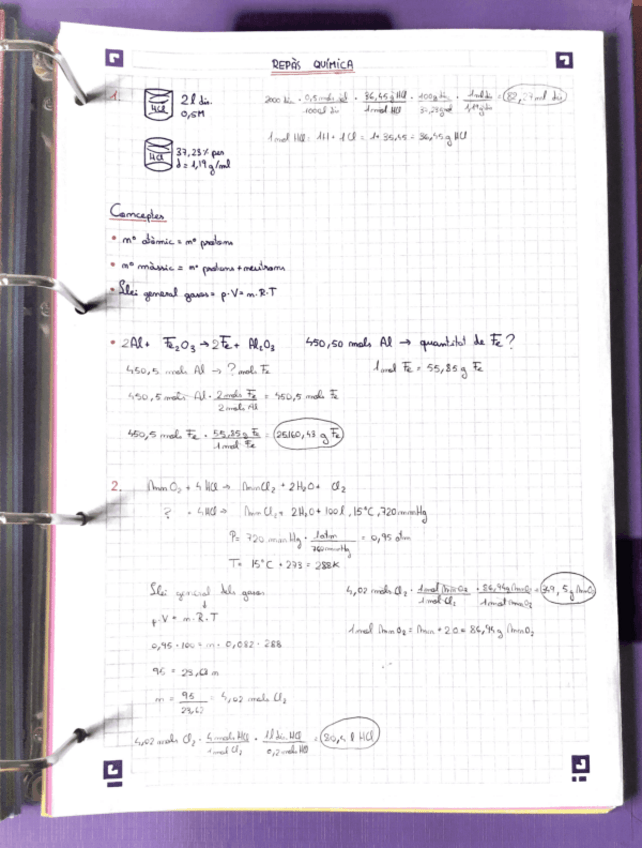 REPÀS QUÍMICA
1. HCl 2 l dis. 0,5M
2000 dis · 0,5 mols HCl / 1000 dis · 36,45 g HCl / 1 mol HCl · 100 g dis / 37,23 g HCl · 1 ml dis / 1,19 g dis = 82,27 ml dis
1 mol HCl = 1H + 1Cl = 1 + 35,45 = 36,45 g HCl
HCl 37,23 % per
d = 1,19 g/ml
Conceptes
• nº atòmic = nº protons
• nº màssic = nº protons + neutrons
• Llei general gasos = p·V = n·R·T
• 2Al + Fe₂O₃ → 2Fe + Al₂O₃ 450,50 mols Al → quantitat de Fe?
450,5 mols Al → ? mols Fe 1 mol Fe = 55,85 g Fe
450,5 mols Al · 2 mols Fe / 2 mols Al = 450,5 mols Fe
450,5 mols Fe · 55,85 g Fe / 1 mol Fe = 25160,43 g Fe
2. MnO₂ + 4HCl → MnCl₂ + 2H₂O + Cl₂
? + 4HCl → MnCl₂ + 2H₂O + 100 l, 15°C, 720 mmHg
P = 720 mmHg · 1 atm / 760 mmHg = 0,95 atm
T = 15°C + 273 = 288K
Llei general dels gasos
↓
p·V = n·R·T
4,02 mols Cl₂ · 1 mol MnO₂ / 1 mol Cl₂ · 86,94 g MnO₂ / 1 mol MnO₂ = 349,5 g MnO₂
1 mol MnO₂ = Mn + 2O = 86,94 g MnO₂
0,95 · 100 = n · 0,082 · 288
95 = 23,62 n
n = 95 / 23,62 = 4,02 mols Cl₂
4,02 mols Cl₂ · 4 mols HCl / 1 mol Cl₂ · 1 l dis. HCl / 0,2 mols HCl = 80,4 l HCl